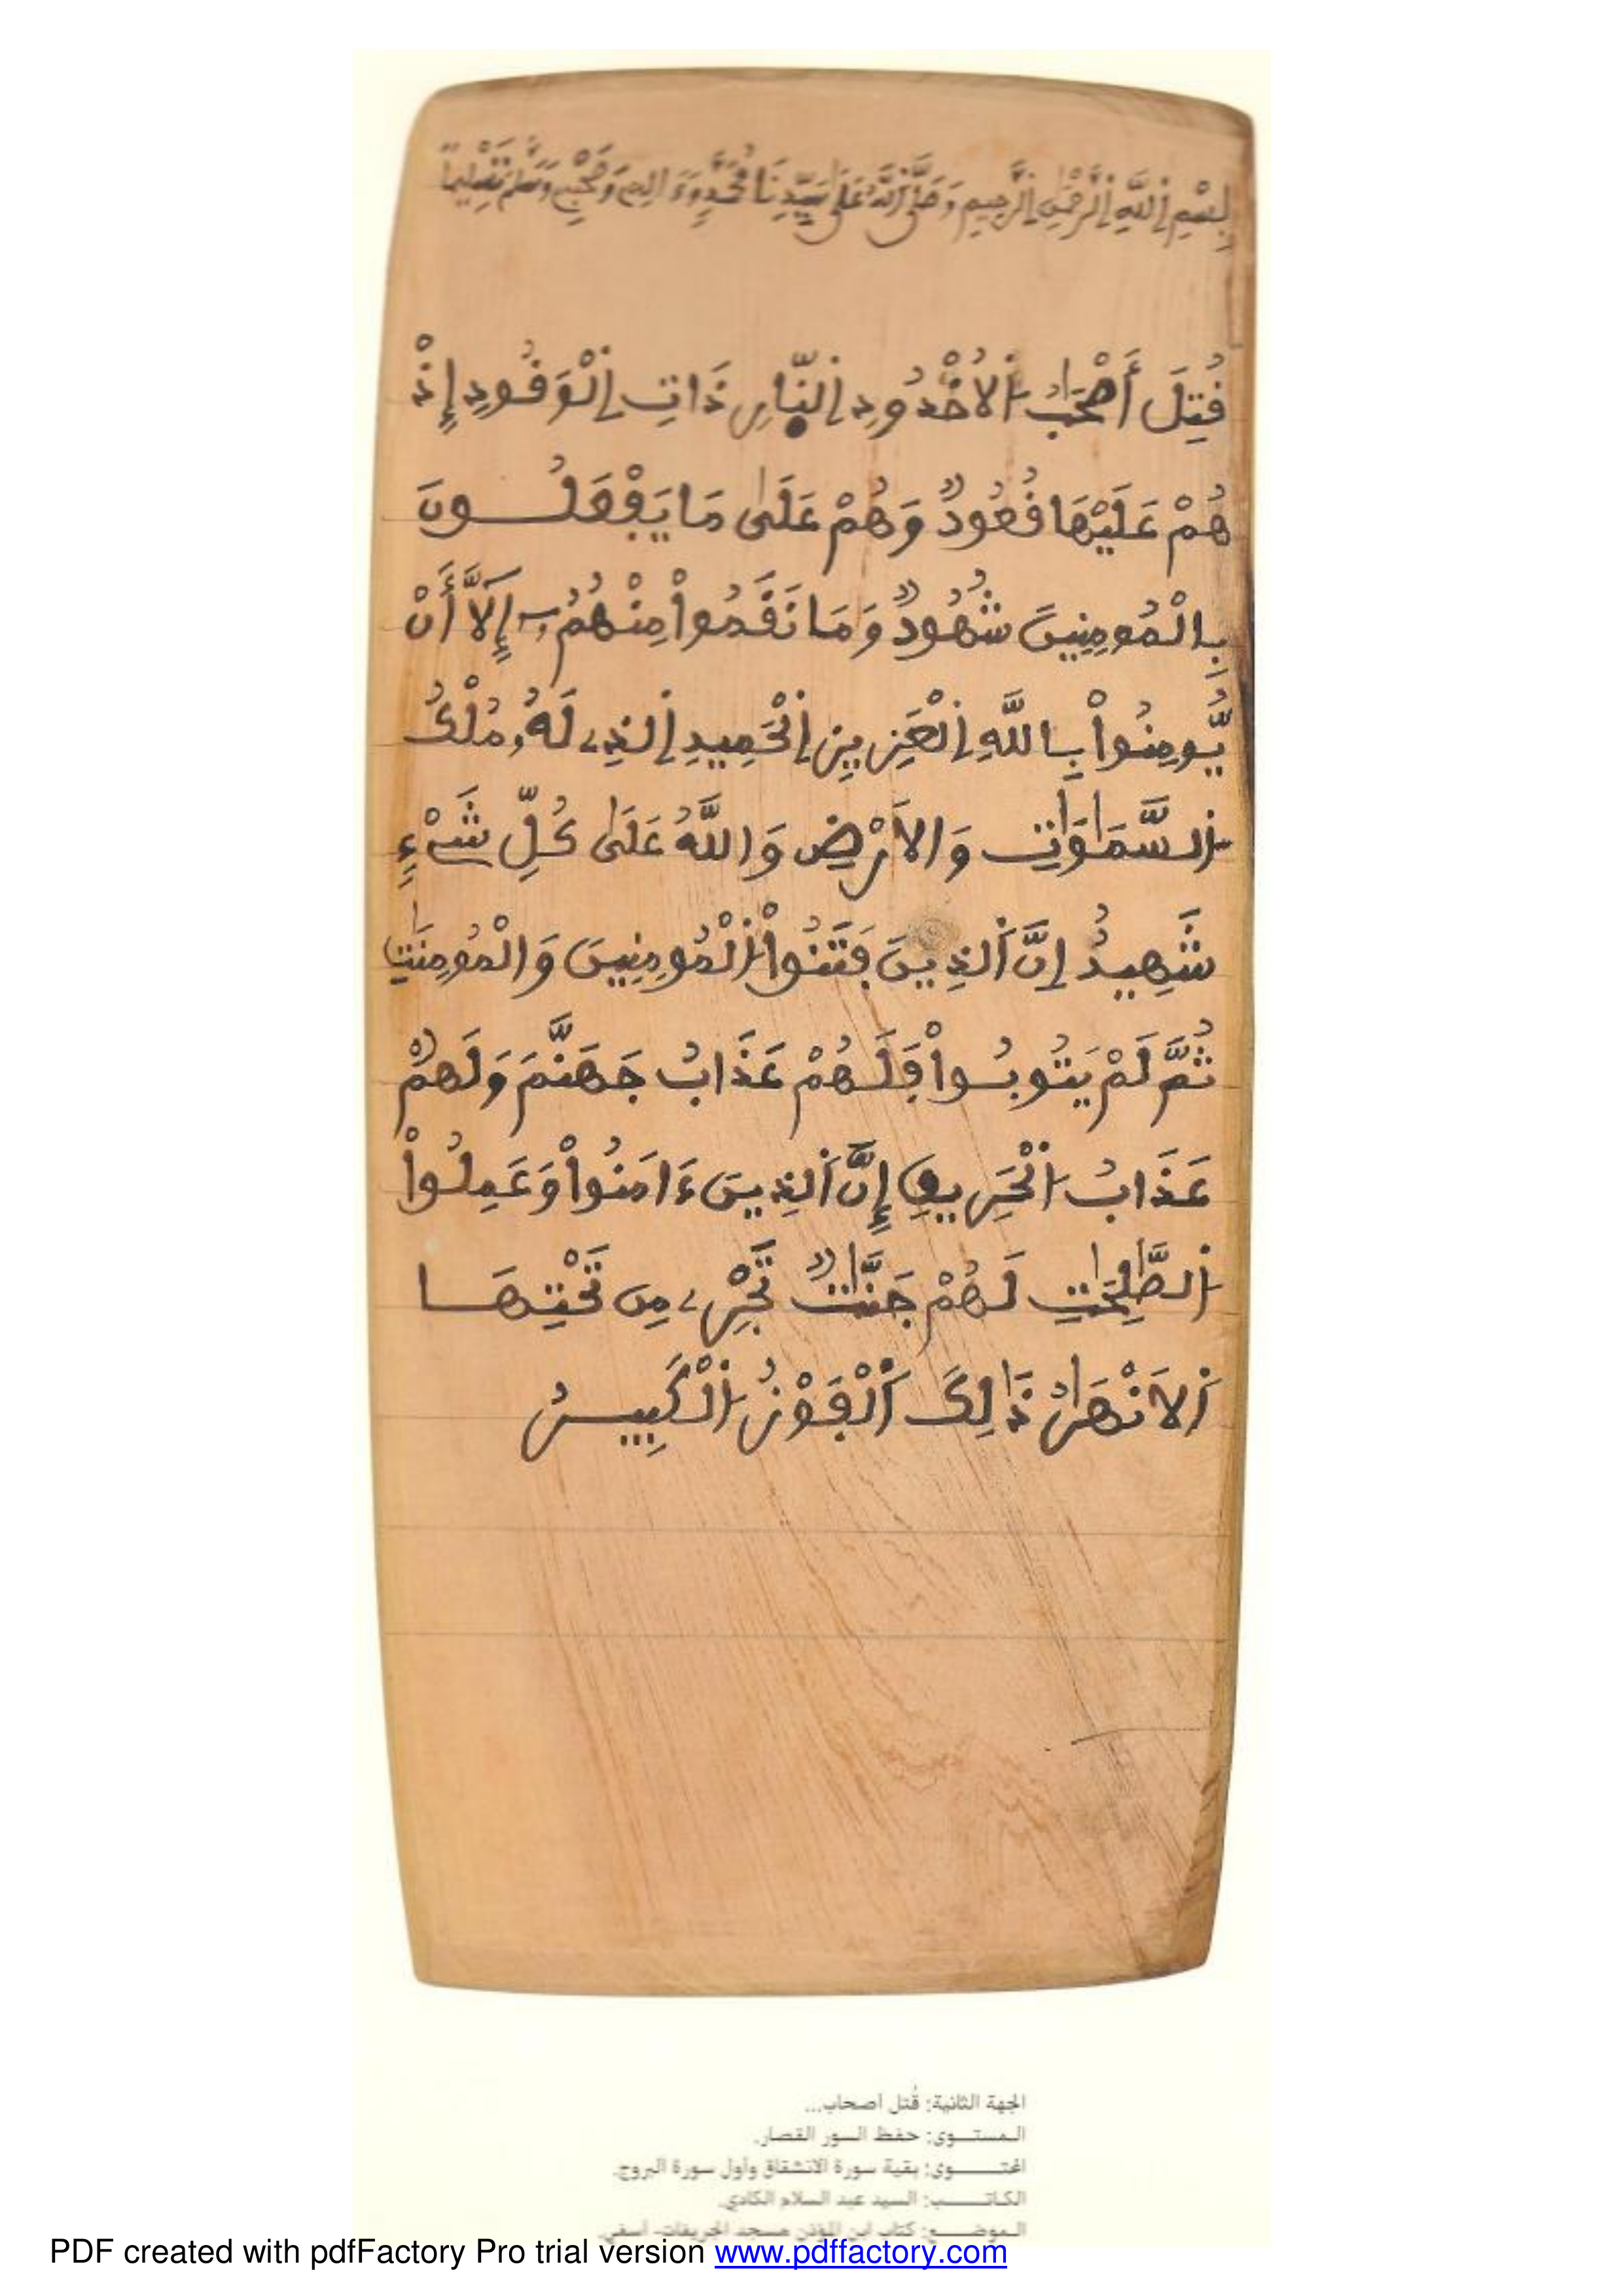 بِسْمِ اِ۬للَّهِ اِ۬لرَّحْمَٰنِ اِ۬لرَّحِيمِ وَصَلَّى اَ۬للَّهُ عَلَىٰ سَيِّدِنَا مُحَمَّدٍ وَءَالِهِ وَصَحْبِهِ وَسَلَّمَ تَسْلِيماً
قُتِلَ أَصْحَٰبُ اُ۬لُاخْدُودِ اِ۬لنّ۪ارِ ذَاتِ اِ۬لْوَقُودِ إِذْ
هُمْ عَلَيْهَا قُعُودٌ وَهُمْ عَلَىٰ مَا يَفْعَلُونَ
بِالْمُومِنِينَ شُهُودٌ وَمَا نَقَمُواْ مِنْهُمُۥٓ إِلَّآ أَنْ
يُّومِنُواْ بِاللَّهِ اِ۬لْعَزِيزِ اِ۬لْحَمِيدِ اِ۬لذِے لَهُۥ مُلْكُ
اُ۬لسَّمَٰوَٰتِ وَالَارْضِ وَاللَّهُ عَلَىٰ كُلِّ شَےْءٍ
شَهِيدٌ إِنَّ اَ۬لذِينَ فَتَنُواْ اُ۬لْمُومِنِينَ وَالْمُومِنَٰتِ
ثُمَّ لَمْ يَتُوبُواْ فَلَهُمْ عَذَابُ جَهَنَّمَ وَلَهُمْ
عَذَابُ اُ۬لْحَرِيقِ إِنَّ اَ۬لذِينَ ءَامَنُواْ وَعَمِلُواْ
اُ۬لصَّٰلِحَٰتِ لَهُمْ جَنَّٰتٌ تَجْرِے مِن تَحْتِهَا
اَ۬لَانْهَٰرُ ذَٰلِكَ اَ۬لْفَوْزُ اُ۬لْكَبِيرُ
الجهة الثانية: قُتل أصحاب...
المستــوى: حفظ السور القصار.
المحتــــوى: بقية سورة الانشقاق وأول سورة البروج.
الكاتـــــب: السيد عبد السلام الكادي.
الموضــــع: كتاب ابن المؤذن مسجد الخريفات- أسفي.
PDF created with pdfFactory Pro trial version www.pdffactory.com